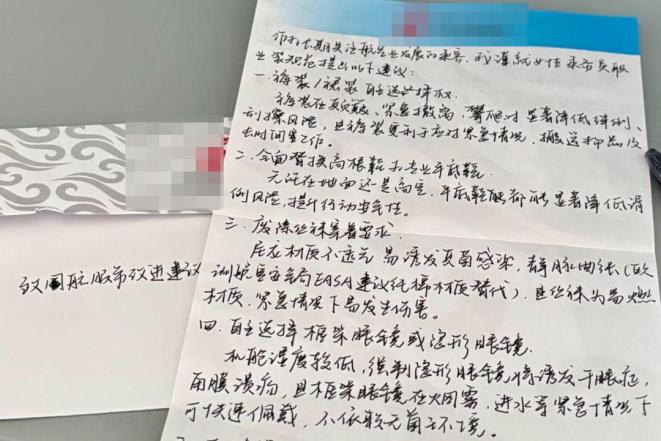 作为长期关注航空业发展的乘客，我谨就女性乘务员职
业装规范提出以下建议：
一. 裤装/裙装自主选择权.
裤装在颠簸、紧急撤离、攀爬时显著降低绊倒、
刮擦风险，且裤装更利于应对紧急情况，搬运物品及
长时间工作。
二. 全面替换高跟鞋为专业平底鞋.
无论在地面还是高空，平底鞋都能显著降低滑
倒风险，提升行动安全性。
三. 废除丝袜穿着要求.
尼龙材质不透气易诱发真菌感染，静脉曲张（欧
洲航空安全局EASA建议纯棉材质替代），且丝袜为易燃
材质，紧急情况下易发生伤害。
四. 自主选择框架眼镜或隐形眼镜.
机舱湿度较低，强制隐形眼镜将诱发干眼症，
角膜溃疡，且框架眼镜在火烟雾，进水等紧急情况下
可快速佩戴，不依赖无菌环境。
致国航服务改进建议